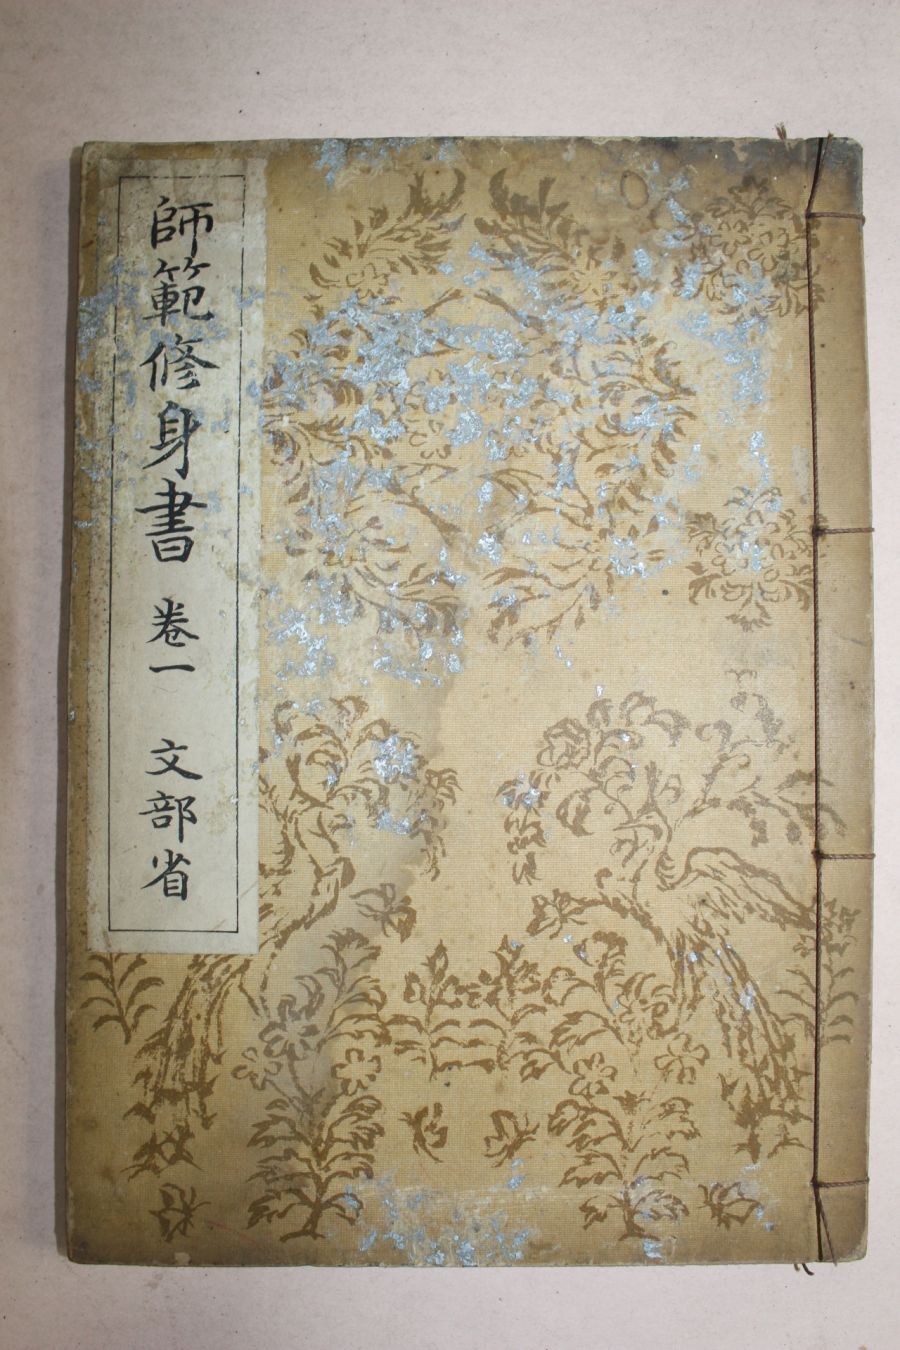 師範修身書 卷一 文部省